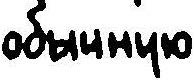 обычную